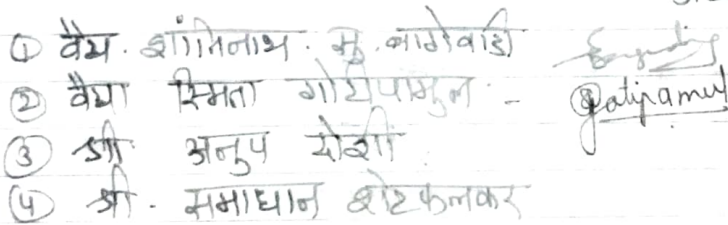 ① वैद्य. शांतिनाथ. मु. बागेवाडी
② वैद्या स्मिता गोटीपामुल - Gotipamul
③ श्री. अनुप दोशी.
④ श्री. समाधान शेटफलकर